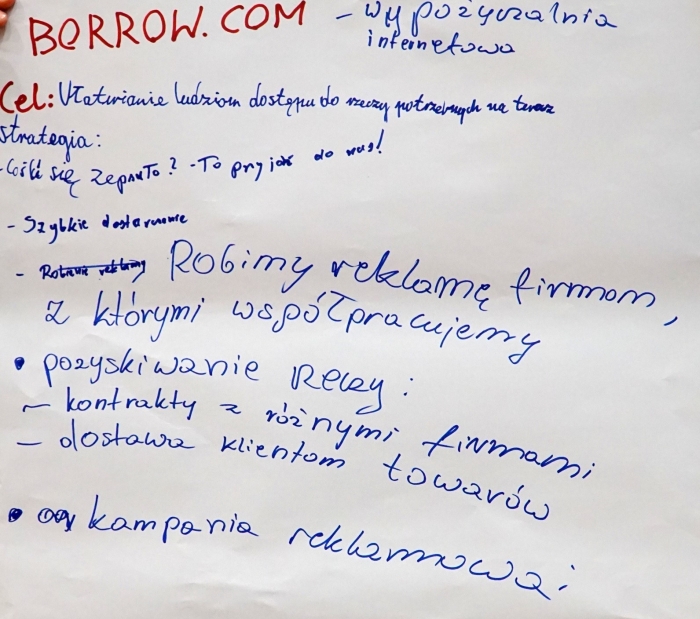 BORROW.COM - wypożyczalnia
internetowa
Cel: Ułatwianie ludziom dostępu do rzeczy potrzebnych na teraz
Strategia:
- Cośći się zepsuło? - To przyjdź do nas!
- Szybkie dostarczanie
- Robimy reklamę firmom,
z którymi współpracujemy
• pozyskiwanie Rzeczy:
- kontrakty z różnymi firmami
- dostawa klientom towarów
• kampania reklamowa: